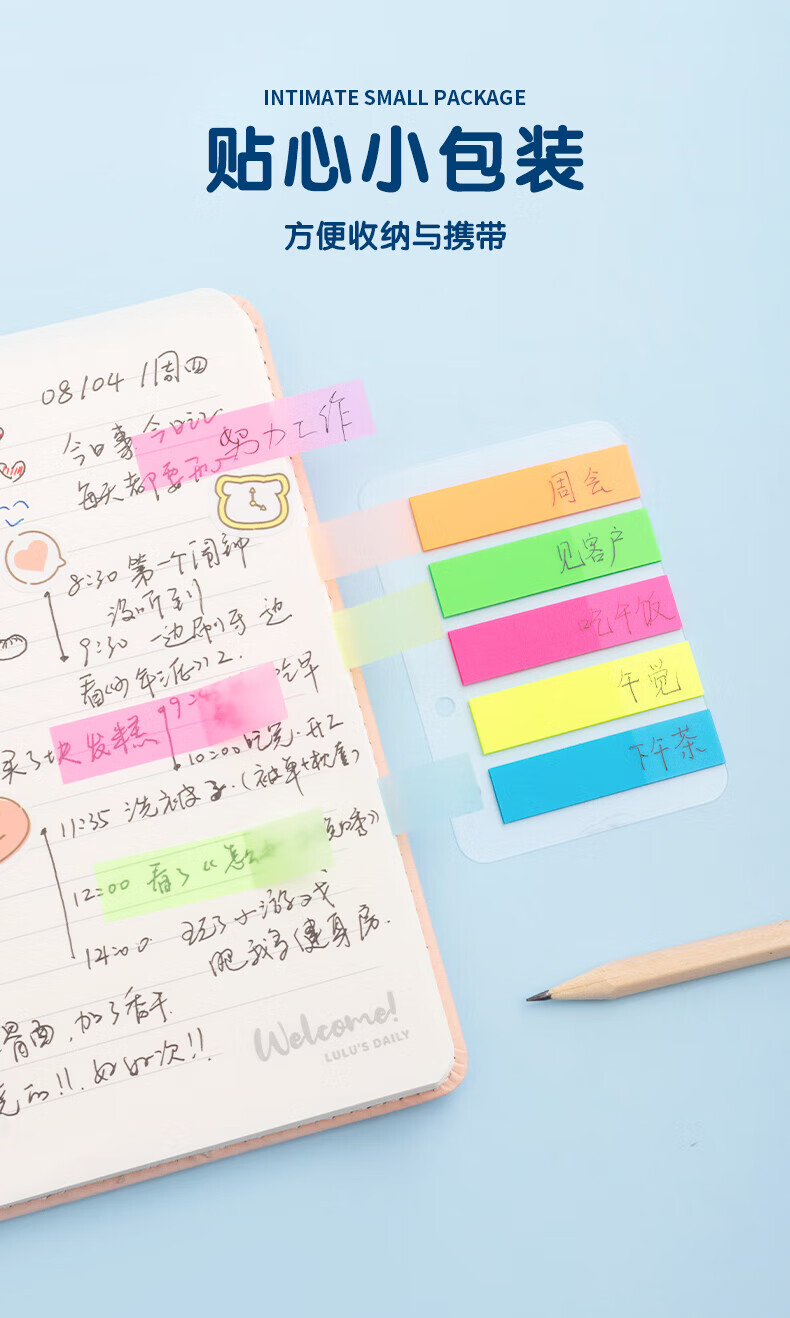 INTIMATE SMALL PACKAGE
贴心小包装
方便收纳与携带
08/04 /周四
今日事 今日记
每天都要
努力工作
8:30 第一个闹钟
没听到
9:30 一边刷牙 边
看
吃早
买了块发糕
10:00 吃完.开工
11:35 洗被子.(被单+枕套)
12:00 看了《怎
14:00 玩了小游戏
肥我了健身房.
胃面,加了香干.
!!. 好好次!!
Welcome!
LULU'S DAILY
周会
见客户
吃午饭
午觉
下午茶